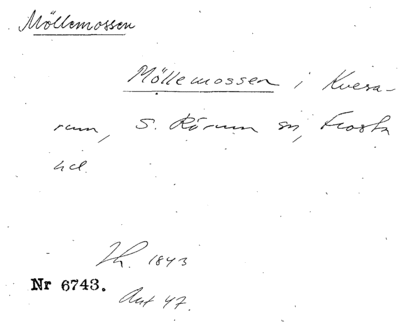 Möllemossen
Möllemossen i Kvesa-
rum, S. Rörum sn, Frosta
hd.
Th. 1843
Nr 6743.
Ant 47.